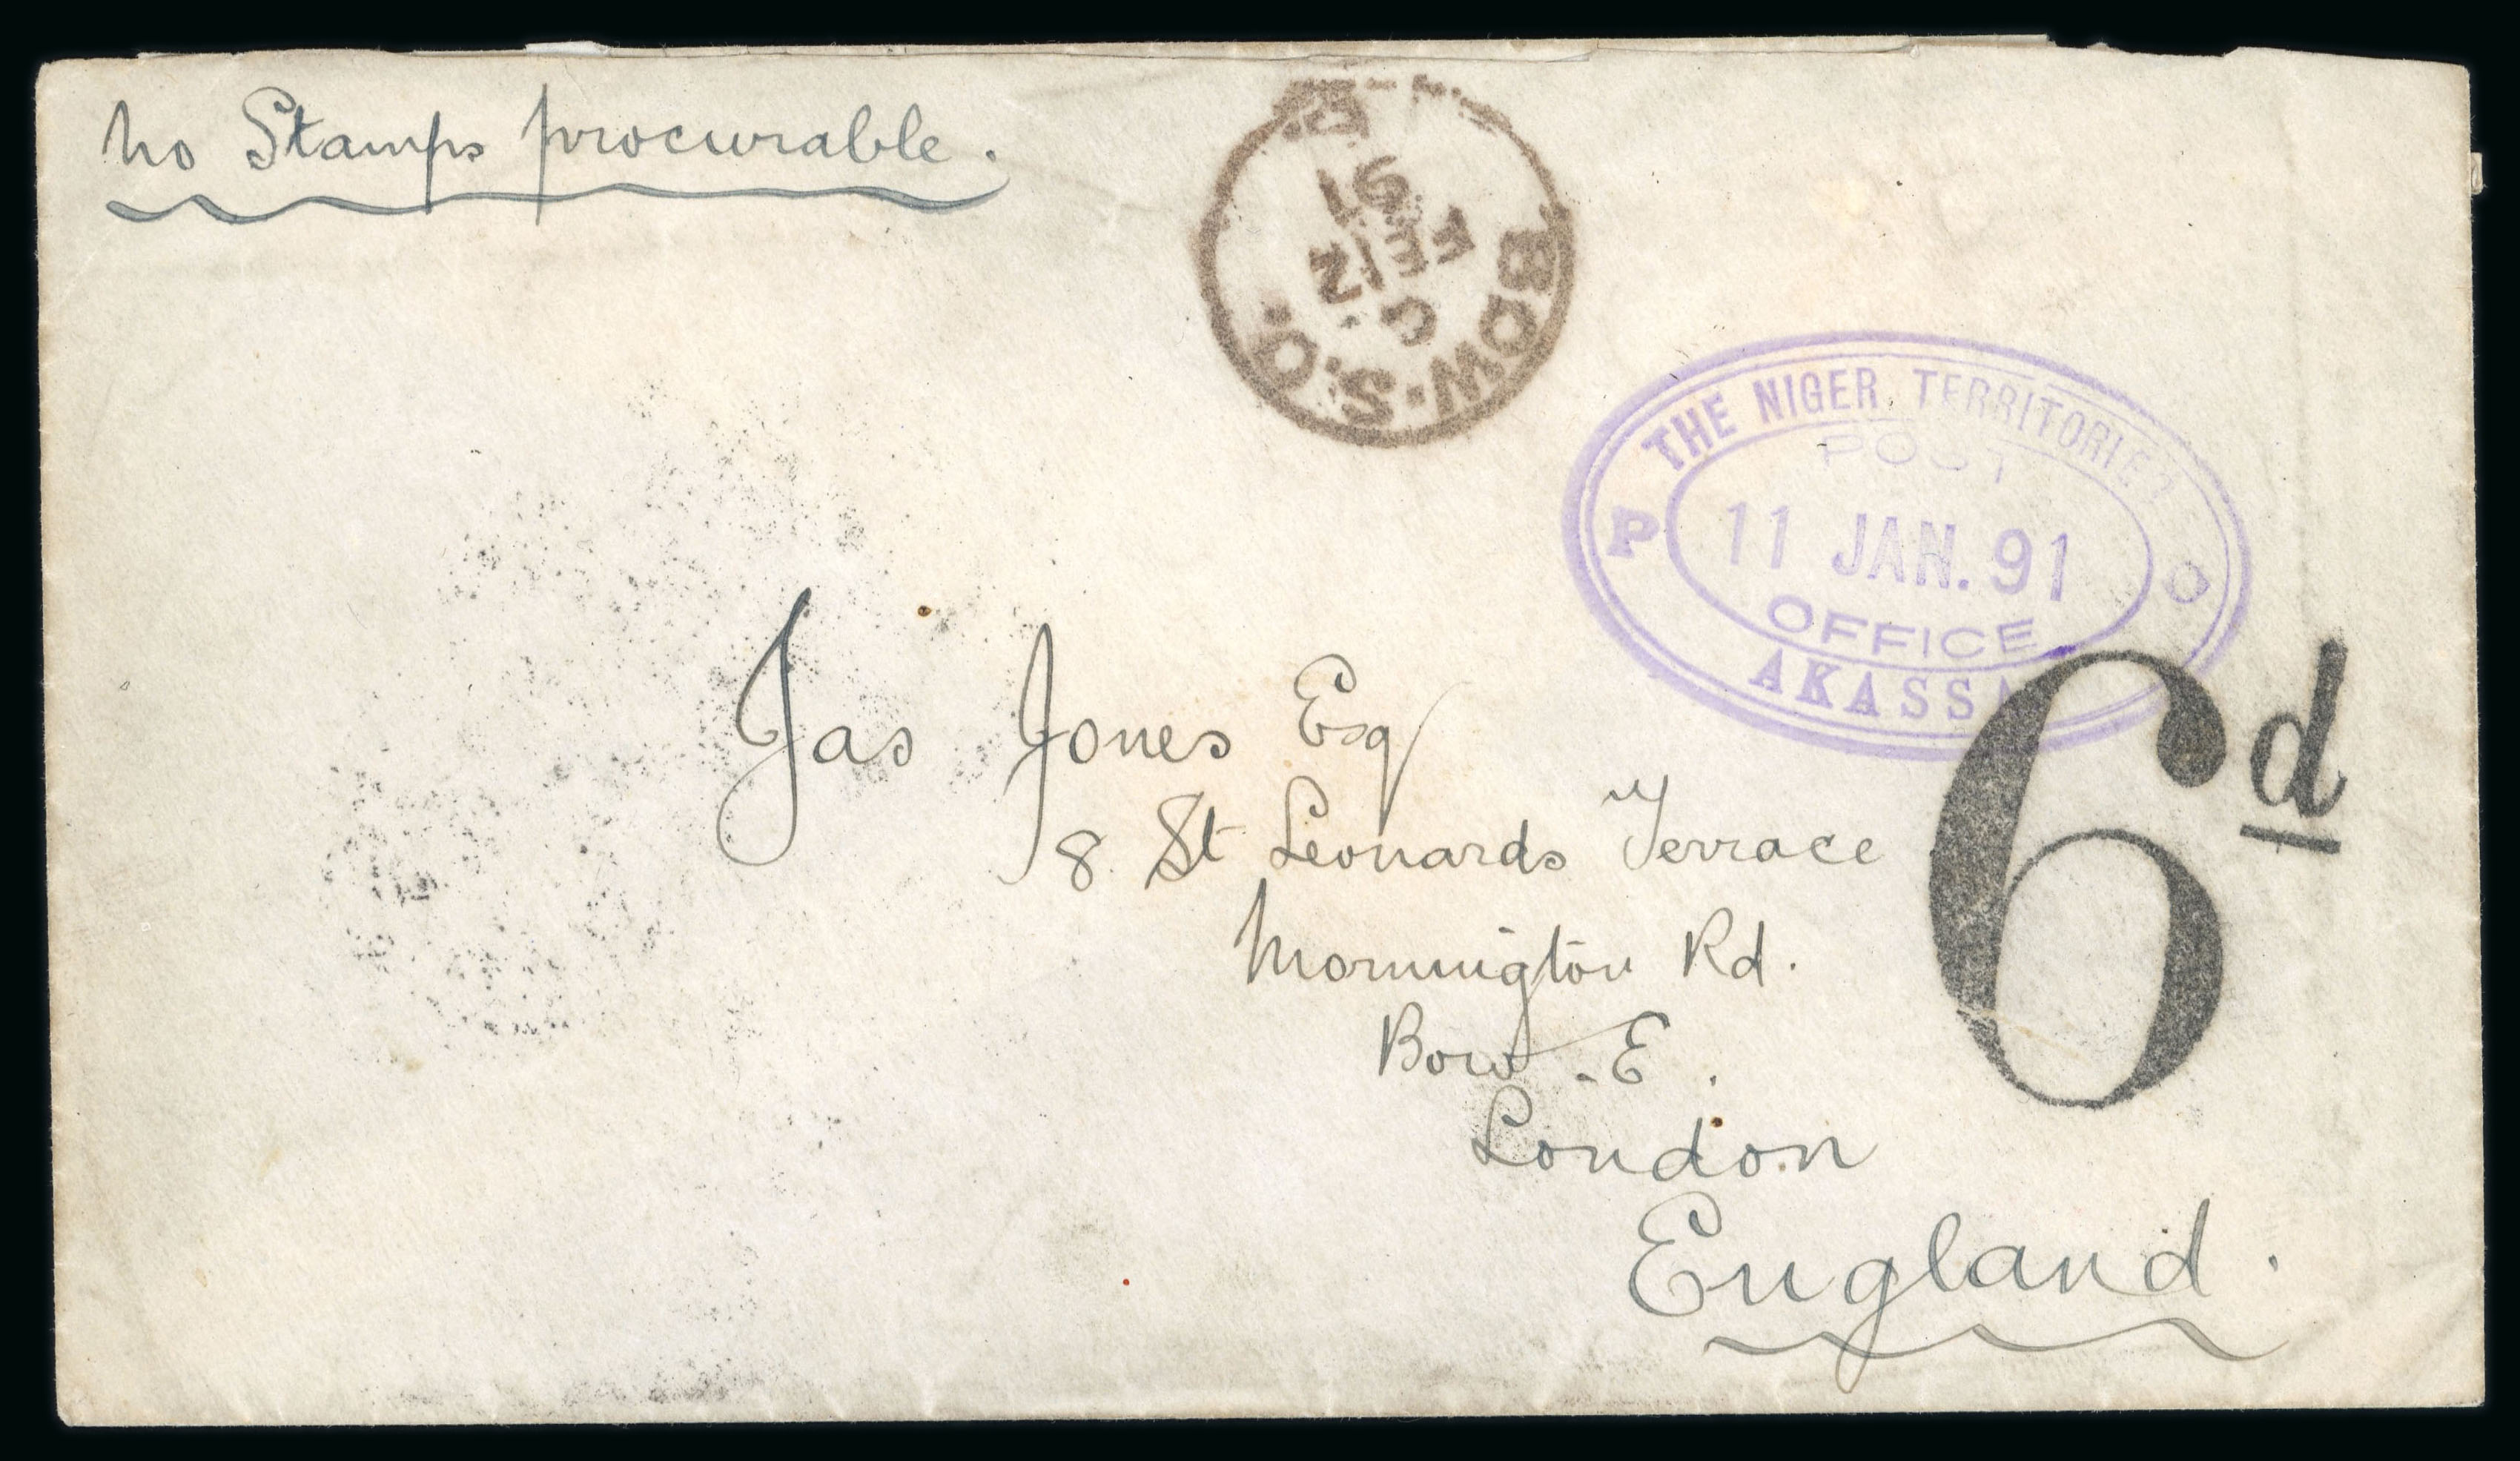 no Stamps procurable.
BOW.S.O.
C
FE 12
91
THE NIGER TERRITORIES
POST
P 11 JAN. 91 O
OFFICE
AKASSA
6d
Jas Jones Esq
8. St Leonards Terrace
Mornington Rd.
Bow .E.
London
England.